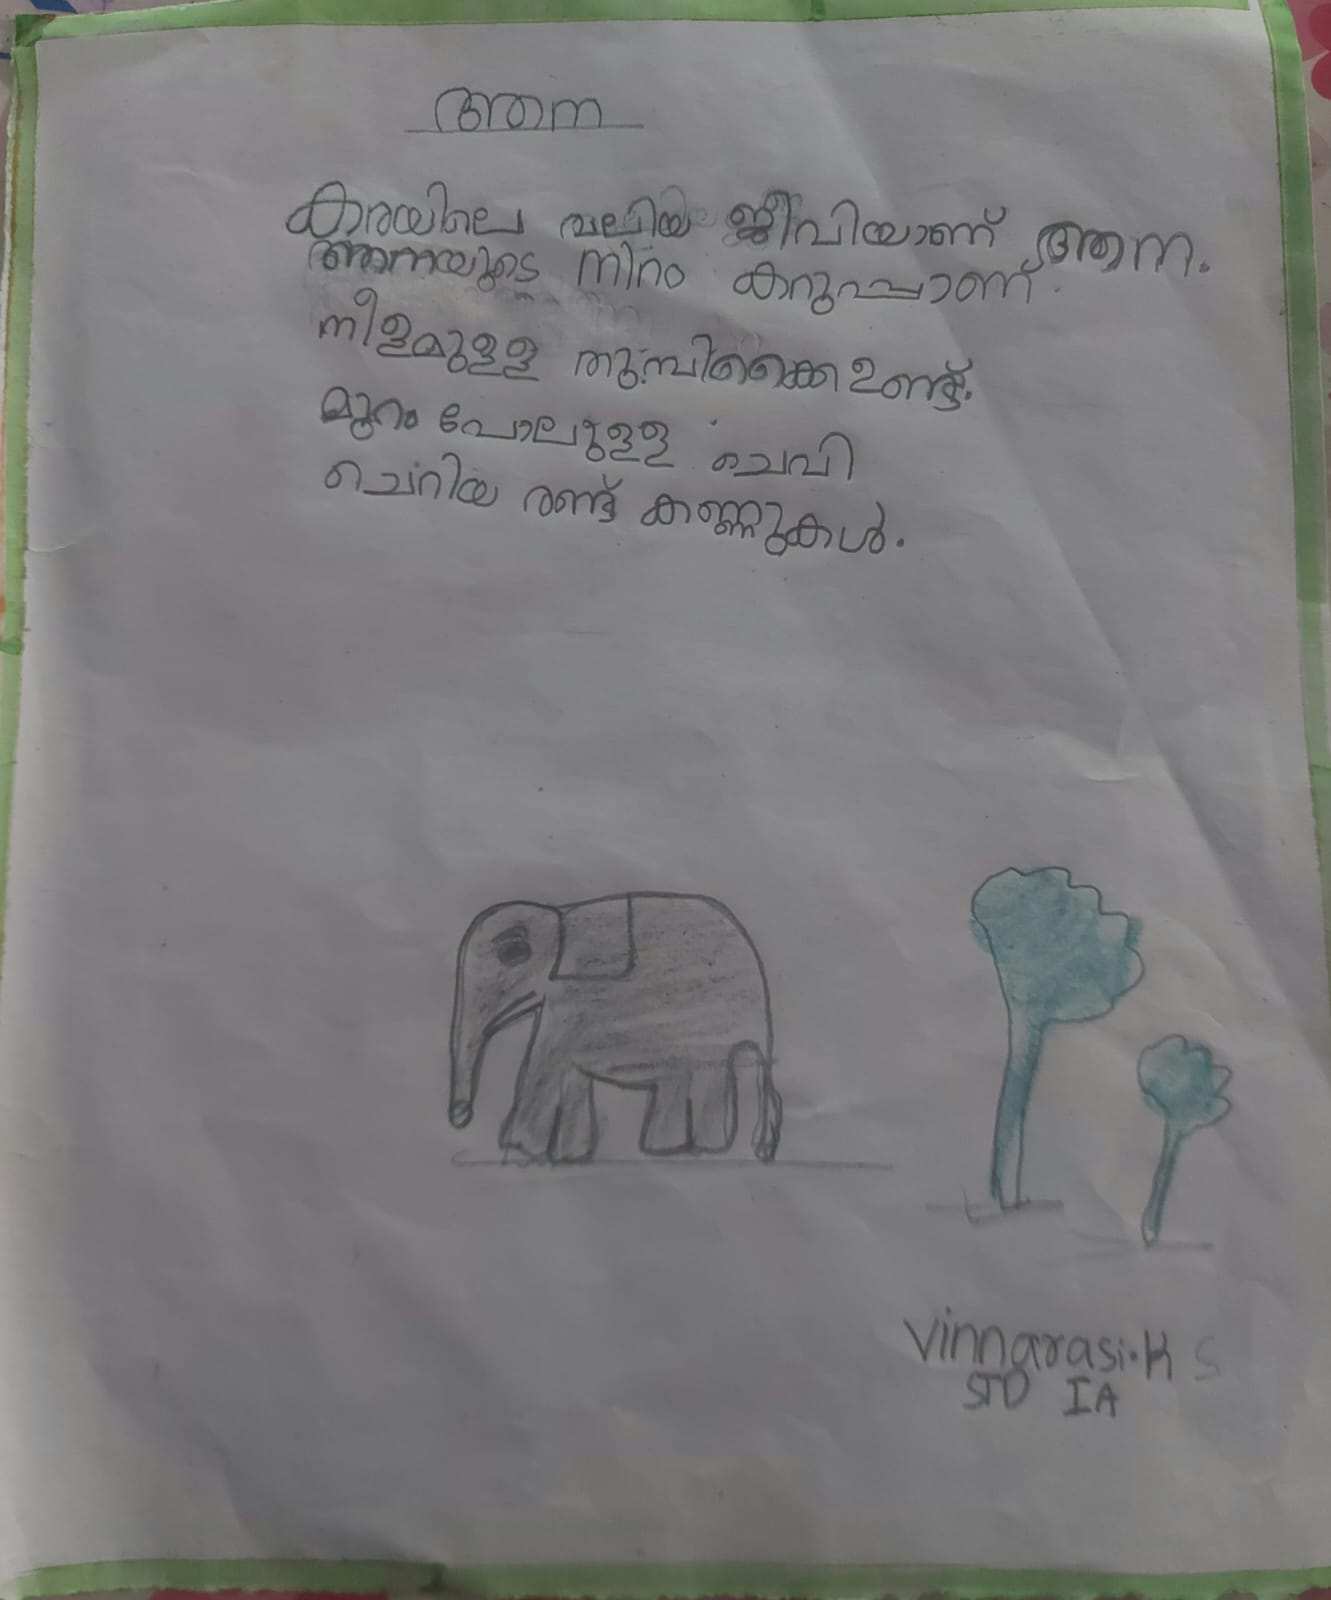 ആന
കരയിലെ വലിയ ജീവിയാണ് ആന.
ആനയുടെ നിറം കറുപ്പാണ്.
നീളമുള്ള തുമ്പിക്കൈ ഉണ്ട്.
മുറം പോലുള്ള ചെവി
ചെറിയ രണ്ട് കണ്ണുകൾ.
Vinnarasi.K S
STD IA